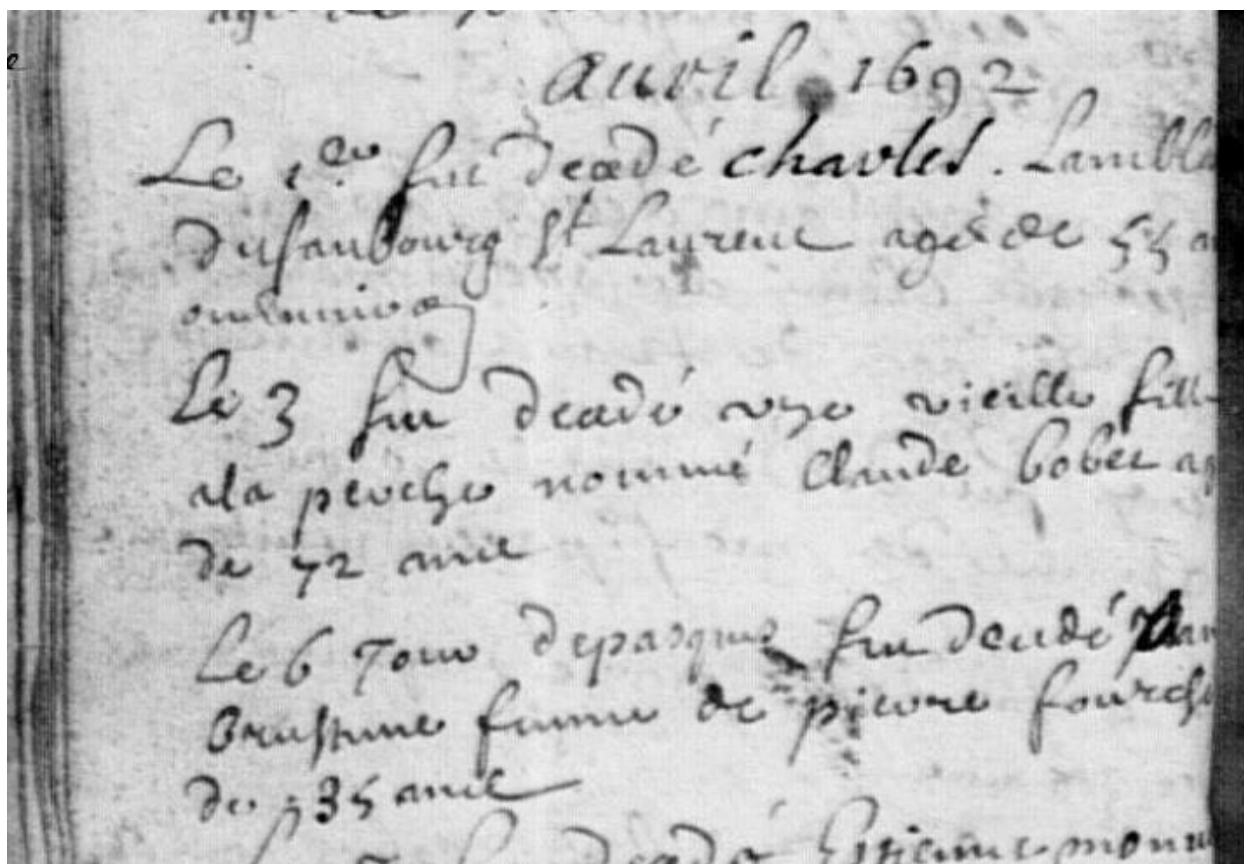 auvril 1692
Le 1er fut decedé charles . Lambla
du faubourg St Laurent agé de 55 a
ou environ
Le 3 fut decedé une vieille fille
a la perche nommé Claude bobet ag
de 72 ans
Le 6 Jour de pasques fut decedé
femme de pierre fourche
de 35 ans
fut decedé Estienne